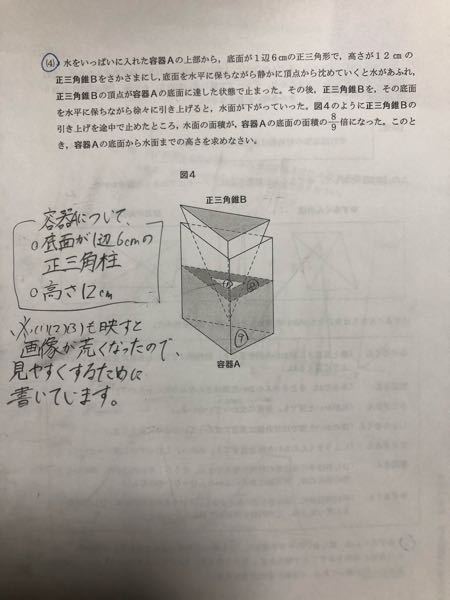 (4) 水をいっぱいに入れた容器Aの上部から，底面が1辺6cmの正三角形で，高さが12cmの
正三角錐Bをさかさまにし，底面を水平に保ちながら静かに頂点から沈めていくと水があふれ，
正三角錐Bの頂点が容器Aの底面に達した状態で止まった。その後，正三角錐Bを，その底面
を水平に保ちながら徐々に引き上げると，水面が下がっていった。図4のように正三角錐Bの
引き上げを途中で止めたところ，水面の面積が，容器Aの底面の面積の8/9倍になった。このと
き，容器Aの底面から水面までの高さを求めなさい。
図4
正三角錐B
容器Aについて、
○底面が1辺6cmの
正三角柱
○高さ12cm
※(1)(2)(3)も映すと
画像が荒くなったので、
見やすくするために
書いています。
⑨
容器A